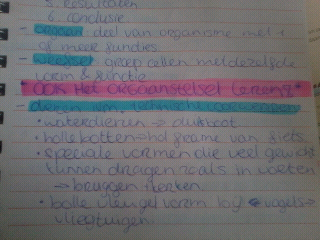 5. resultaten
6. conclusie
- orgaan: deel van organisme met 1
of meer functies
- weefsel: groep cellen met dezelfde
vorm & functie
* OOK Het ORGAANSTELSEL LEREN!! *
- dieren en technische toepassingen
• waterdieren → duikboot
• holle botten → hol frame van fiets
• speciale vormen die veel gewicht
kunnen dragen zoals in voeten
→ bruggen sterken
• bolle vleugel vorm bij vogels →
vliegtuigen.